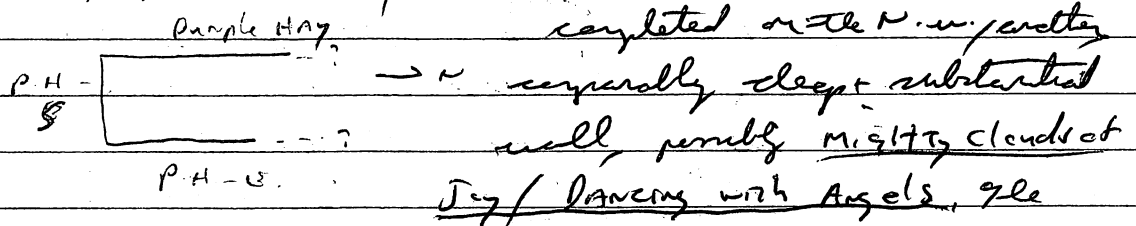 Purple HAy
P H -
S
→ N
P.H - E.
completed on the N. w/ another
comparably deep + substantial
wall, possibly Mighty Clouds of
Joy / DANCING with Angels,